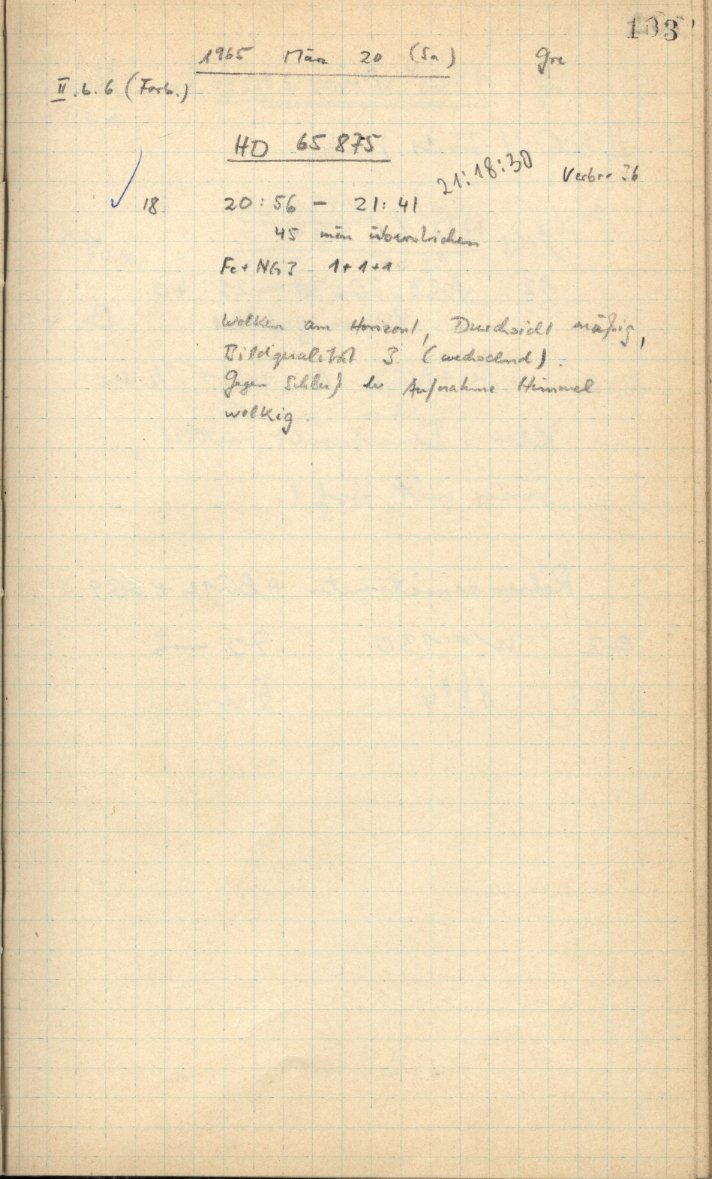 103
1965 März 20 (Sa) Gre
II.b.6 (Forb.)
HD 65 875
18 20:56 – 21:41 21:18:30
45 min überstrichen
Fe + NG3 1+1+1
Wolken am Horizont, Durchsicht mäßig,
Bildqualität 3 (wechselnd).
Gegen Schluß der Aufnahme Himmel
wolkig.